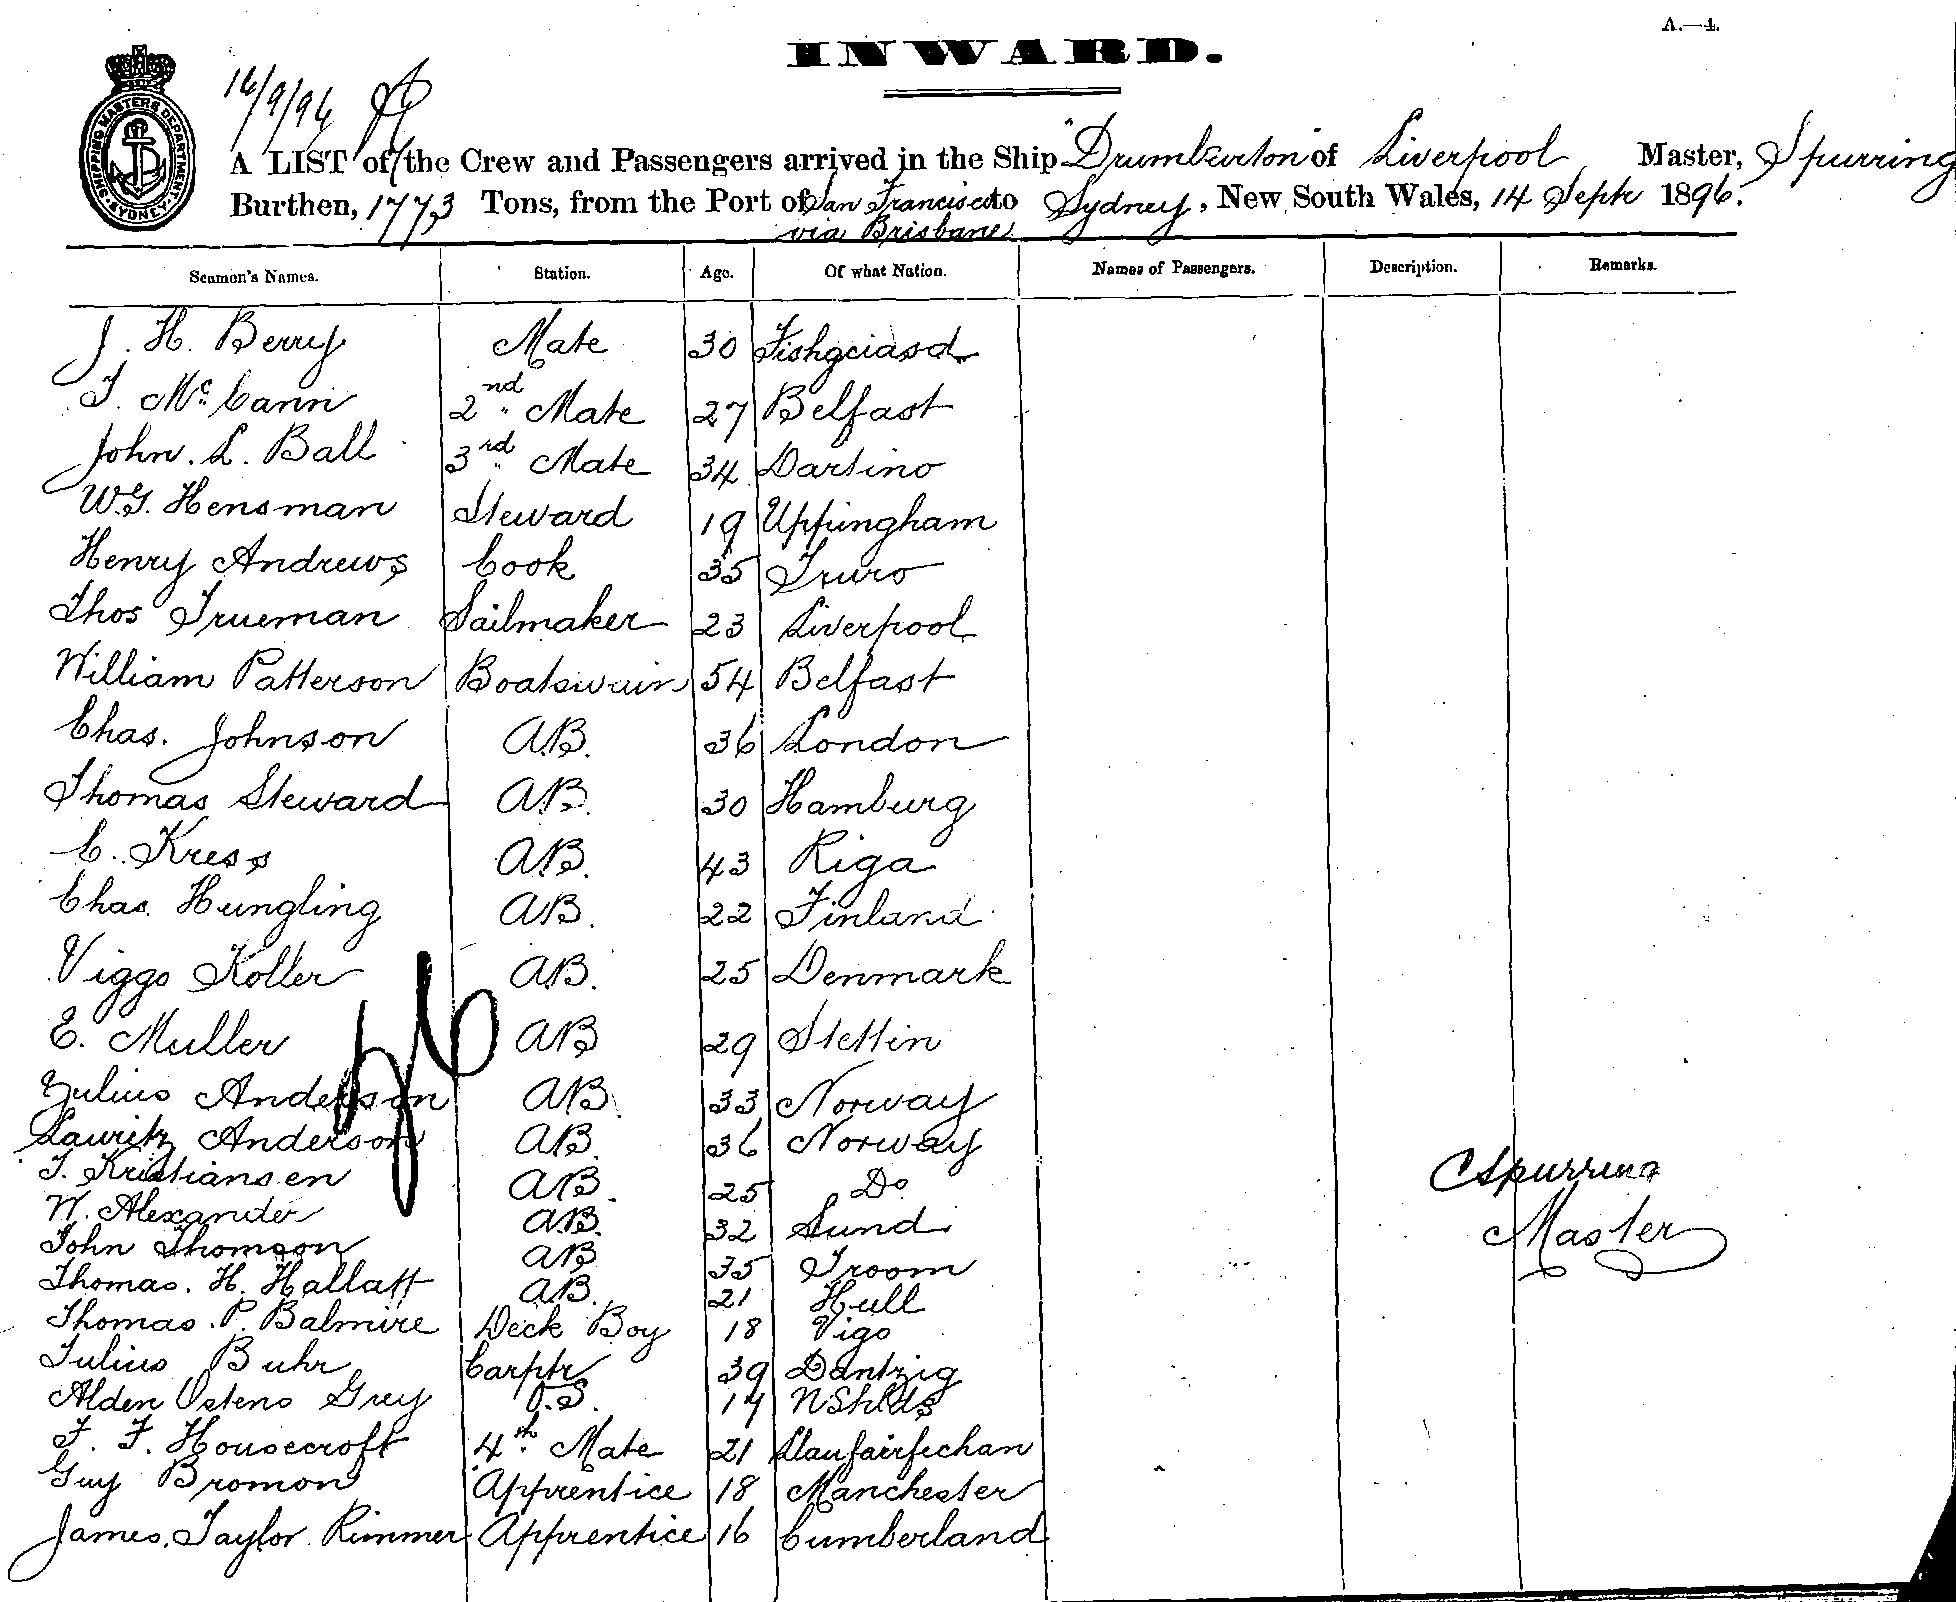 A.—4.
INWARD.
SHIPPING MASTERS DEPARTMENT SYDNEY
16/9/96
A LIST of the Crew and Passengers arrived in the Ship "Drumburton" of Liverpool Master, Spurring
Burthen, 1773 Tons, from the Port of San Francisco to Sydney, New South Wales, 14 Sept 1896.
via Brisbane
Seamen's Names. Station. Age. Of what Nation. Names of Passengers. Description. Remarks.
J. H. Berry Mate 30 Fishgciasd
T. McCann 2nd Mate 27 Belfast
John. L. Ball 3rd Mate 34 Dartino
W.G. Hensman Steward 19 Uppingham
Henry Andrews Cook 35 Truro
Thos Trueman Sailmaker 23 Liverpool
William Patterson Boatswain 54 Belfast
Chas. Johnson AB. 36 London
Thomas Steward AB. 30 Hamburg
C. Kress AB. 43 Riga
Chas. Hungling AB. 22 Finland
Viggo Koller AB. 25 Denmark
E. Muller AB 29 Stettin
Julius Anderson AB. 33 Norway
Lauritz Anderson AB. 36 Norway
T. Kristiansen AB. 25 Do
W. Alexander AB. 32 Sund
John Thomson AB 35 Troom
Thomas. H. Hallatt AB. 21 Hull
Thomas. P. Balmire Deck Boy 18 Vigo
Julius Buhr Carptr 39 Dantzig
Alden Ostens Grey O.S. 17 NShlds
F. F. Housecroft 4th Mate 21 Llanfairfechan
Guy Bromon Apprentice 18 Manchester
James. Taylor Rimmer Apprentice 16 Cumberland
C Spurring
Master